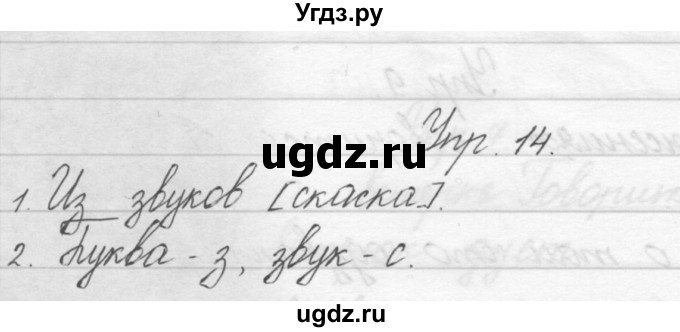 Угдз.ру
ugdz.ru
Упр. 14.
1. Из звуков [скаска].
2. Буква - з, звук - с.
ugdz.ru